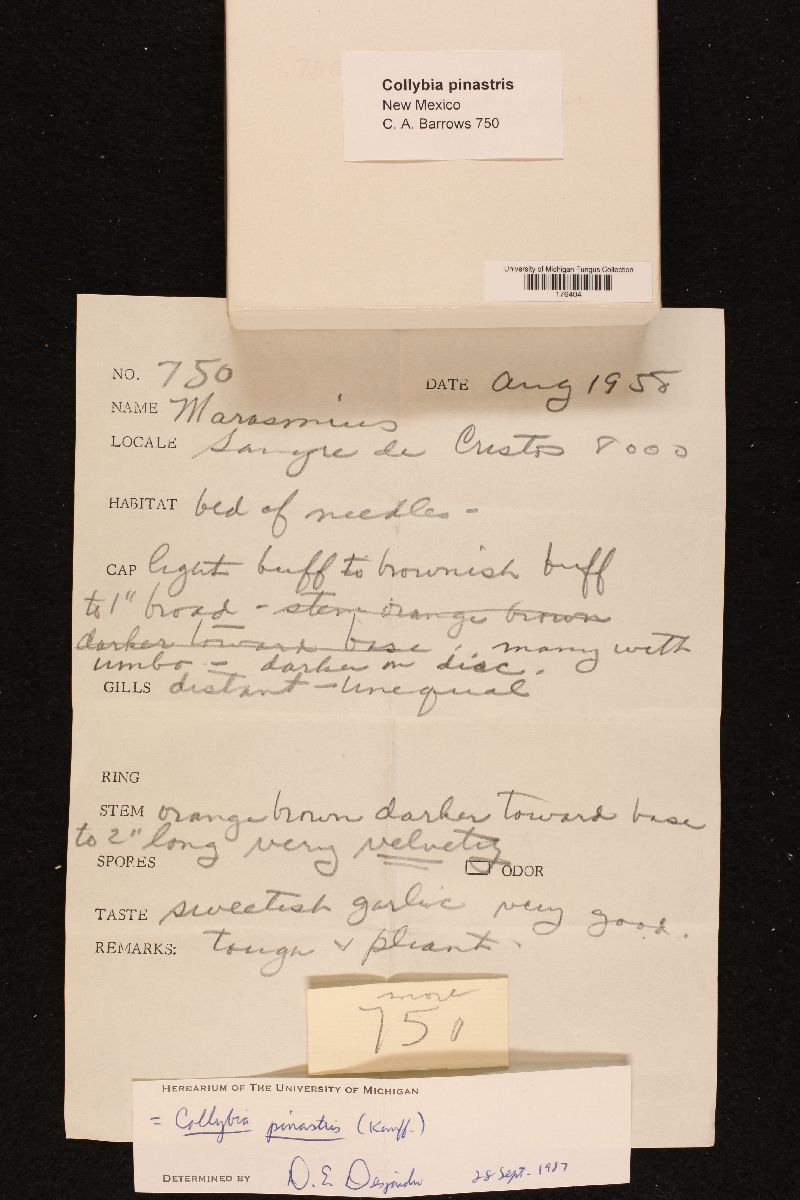 750
Collybia pinastris
New Mexico
C. A. Barrows 750
University of Michigan Fungus Collection
176404
NO. 750
DATE Aug 1958
NAME Marasmius
LOCALE Sangre de Cristos 8000
HABITAT bed of needles -
CAP light buff to brownish buff
to 1" broad - stem orange brown
darker toward base ; many with
umbo - darker on disc.
GILLS distant - unequal
RING
STEM orange brown darker toward base
to 2" long very velvety
SPORES
ODOR
TASTE sweetish garlic very good.
REMARKS: tough & pliant.
more
750
HERBARIUM OF THE UNIVERSITY OF MICHIGAN
= Collybia pinastris (Kauff.)
DETERMINED BY D. E. Desjardin 28 Sept. 1987